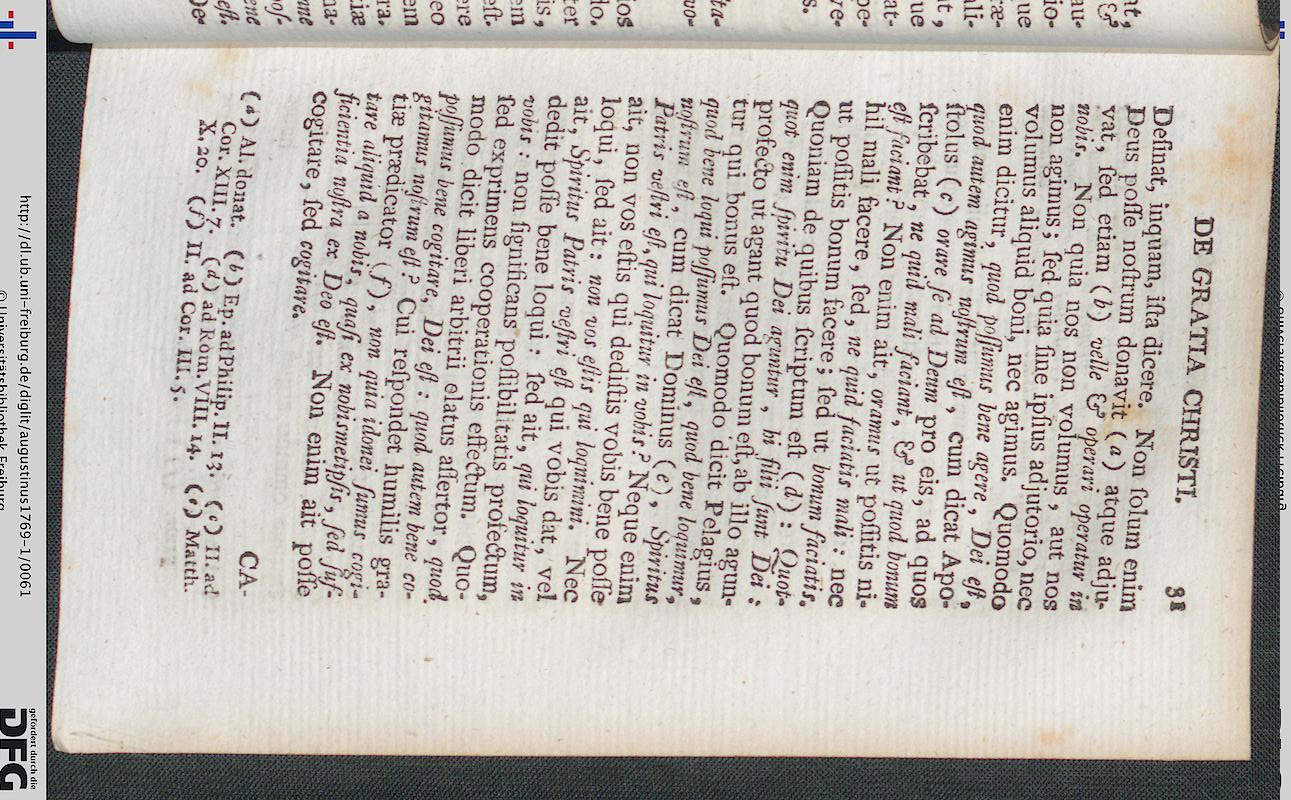 DE GRATIA CHRISTI. 31
Desinat, inquam, ista dicere. Non solum enim
Deus posse nostrum donavit (a) atque adju-
vat, sed etiam (b) velle & operari operatur in
nobis. Non quia nos non volumus, aut nos
non agimus; sed quia sine ipsius adjutorio, nec
volumus aliquid boni, nec agimus. Quomodo
enim dicitur, quod possumus bene agere, Dei est,
quod autem agimus nostrum est, cum dicat Apo-
stolus (c) orare se ad Deum pro eis, ad quos
scribebat, ne quid mali faciant, & ut quod bonum
est faciant? Non enim ait, oramus ut possitis ni-
hil mali facere, sed, ne quid faciatis mali: nec
ut possitis bonum facere; sed ut bonum faciatis.
Quoniam de quibus scriptum est (d): Quot-
quot enim spiritu Dei aguntur, hi filii sunt Dei;
profecto ut agant quod bonum est, ab illo agun-
tur qui bonus est. Quomodo dicit Pelagius,
quod bene loqui possumus Dei est, quod bene loquimur,
nostrum est, cum dicat Dominus (e), Spiritus
Patris vestri est, qui loquitur in vobis? Neque enim
ait, non vos estis qui dedistis vobis bene posse
loqui, sed ait: non vos estis qui loquimini. Nec
ait, Spiritus Patris vestri est qui vobis dat, vel
dedit posse bene loqui: sed ait, qui loquitur in
vobis: non significans possibilitatis profectum,
sed exprimens cooperationis effectum. Quo-
modo dicit liberi arbitrii elatus assertor, quod
possumus bene cogitare, Dei est: quod autem bene co-
gitamus nostrum est? Cui respondet humilis gra-
tiæ prædicator (f), non quia idonei sumus cogi-
tare aliquid a nobis, quasi ex nobismetipsis, sed suf-
ficientia nostra ex Deo est. Non enim ait posse
cogitare, sed cogitare.
CA-
(a) Al. donat. (b) Ep. ad Philip. II. 13. (c) II. ad
Cor. XIII. 7. (d) ad Rom. VIII. 14. (e) Matth.
X. 20. (f) II. ad Cor. III. 5.
http://dl.ub.uni-freiburg.de/diglit/augustinus1769-1/0061
© Universitätsbibliothek Freiburg
gefördert durch die
DFG